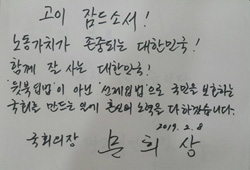 고이 잠드소서!
노동가치가 존중되는 대한민국!
함께 잘 사는 대한민국!
'뒷북입법'이 아닌 '선제입법'으로 국민을 보호하는
국회로 만드는 일에 혼신의 노력을 다하겠습니다.
2019. 2. 8
국회의장 문 희 상